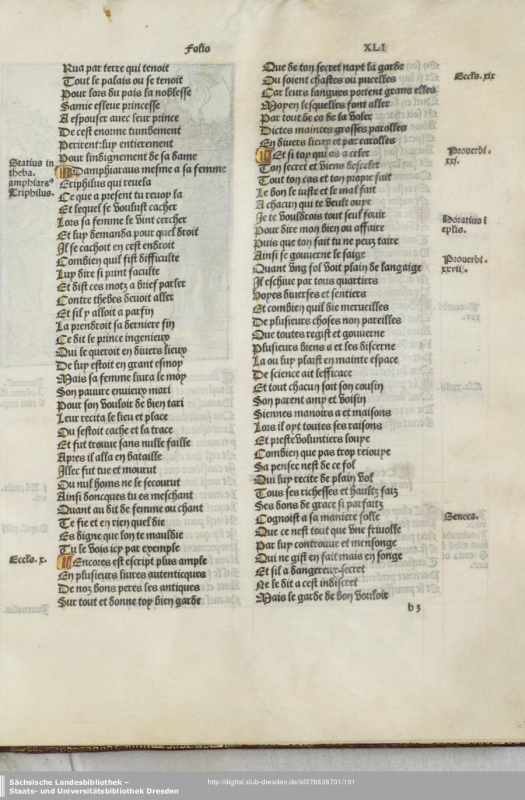 Folio XLI
Rua par terre qui tenoit
Tout le palais ou se tenoit
Pour lors du pais la noblesse
Samie esleue princesse
A espouser avec leur prince
De cest enorme tumbement
Perirent:luy entierement
Pour lindignement de sa dame
Damphiaraus mesme a sa femme
Eriphilus qui reuela
Ce que a present tu reuoy la
Et lequel se voulust cacher
Lors sa femme le vint cercher
Et luy demanda pour quel droit
Il se cachoit en cest endroit
Combien quil fist difficulte
Luy dire si print faculte
Et dist ces motz a brief parler
Contre thebes deuoit aller
Et sil y alloit a parfin
La prendroit sa derniere fin
Ce dit le prince ingenieux
Qui le queroit en diuers lieux
De luy estoit en grant esmoy
Mais sa femme liura le moy
Son pauure ennieux mari
Pour son vouloir de bien tari
Leur recita le lieu et place
Ou sestoit cache et la trace
Et fut trouue sans nulle faille
Apres il alla en bataille
Illec fut tue et mourut
Ou nul homs ne le secourut
Ainsi doncques tu es meschant
Quant au dit de femme ou chant
Te fie et en rien quel die
Es digne que lon te mauldie
Tu le vois icy par exemple
Encores est escript plus ample
En plusieurs liures autenticques
De noz bons peres les antiques
Sur tout et donne toy bien garde
Statius in
theba.
amphiaraꝰ
Eriphilus.
Eccls. x.
Que de ton secret nayt la garde
Ou soient chastes ou pucelles
Car leurs langues portent grans elles
Moyen lesquelles font aller
Par tout de co de la voler
Dictes maintes grosses parolles
En diuers lieux et par carolles
Et si toy qui as a celer
Ton secret et viens desceler
Tout ton cas et ton propre fait
Le bon le iuste et le mal fait
A chacun qui te veult ouyr
Je te vouldrois tout seul fouir
Pour dire mon bien ou affaire
Puis que ton fait tu ne peuz taire
Ainsi se gouuerne le saige
Quant vng fol voit plain de langaige
Il eschiue par tous quartiers
Voyes diuerses et sentiers
Et combien quil die merueilles
De plusieurs choses non pareilles
Que toutes regist et gouuerne
Plusieurs biens a et les discerne
La ou luy plaist en mainte espace
De science ait lefficace
Et tout chacun soit son cousin
Son parent amy et voisin
Siennes manoirs a et maisons
Lois il oyt toutes ses raisons
Et preste voluntiers louye
Combien que pas trop resiouye
Sa pensee nest de ce fol
Qui luy recite de plain vol
Tous ses richesses et haultz faiz
Ses dons de grace si parfaitz
Cognoist a sa maniere folle
Que ce nest tout que vne friuolle
Par luy controuue et mensonge
Qui ne gist en fait mais en songe
Et sil a dangereux secret
Ne le dit a cest indiscret
Mais le garde de bon vouloir
Eccls. xix
Prouerbi.
xxj.
Horatius i
eplis.
Prouerbi.
xxvij.
Seneca.
b 3
Sächsische Landesbibliothek –
Staats- und Universitätsbibliothek Dresden
http://digital.slub-dresden.de/id378636731/101